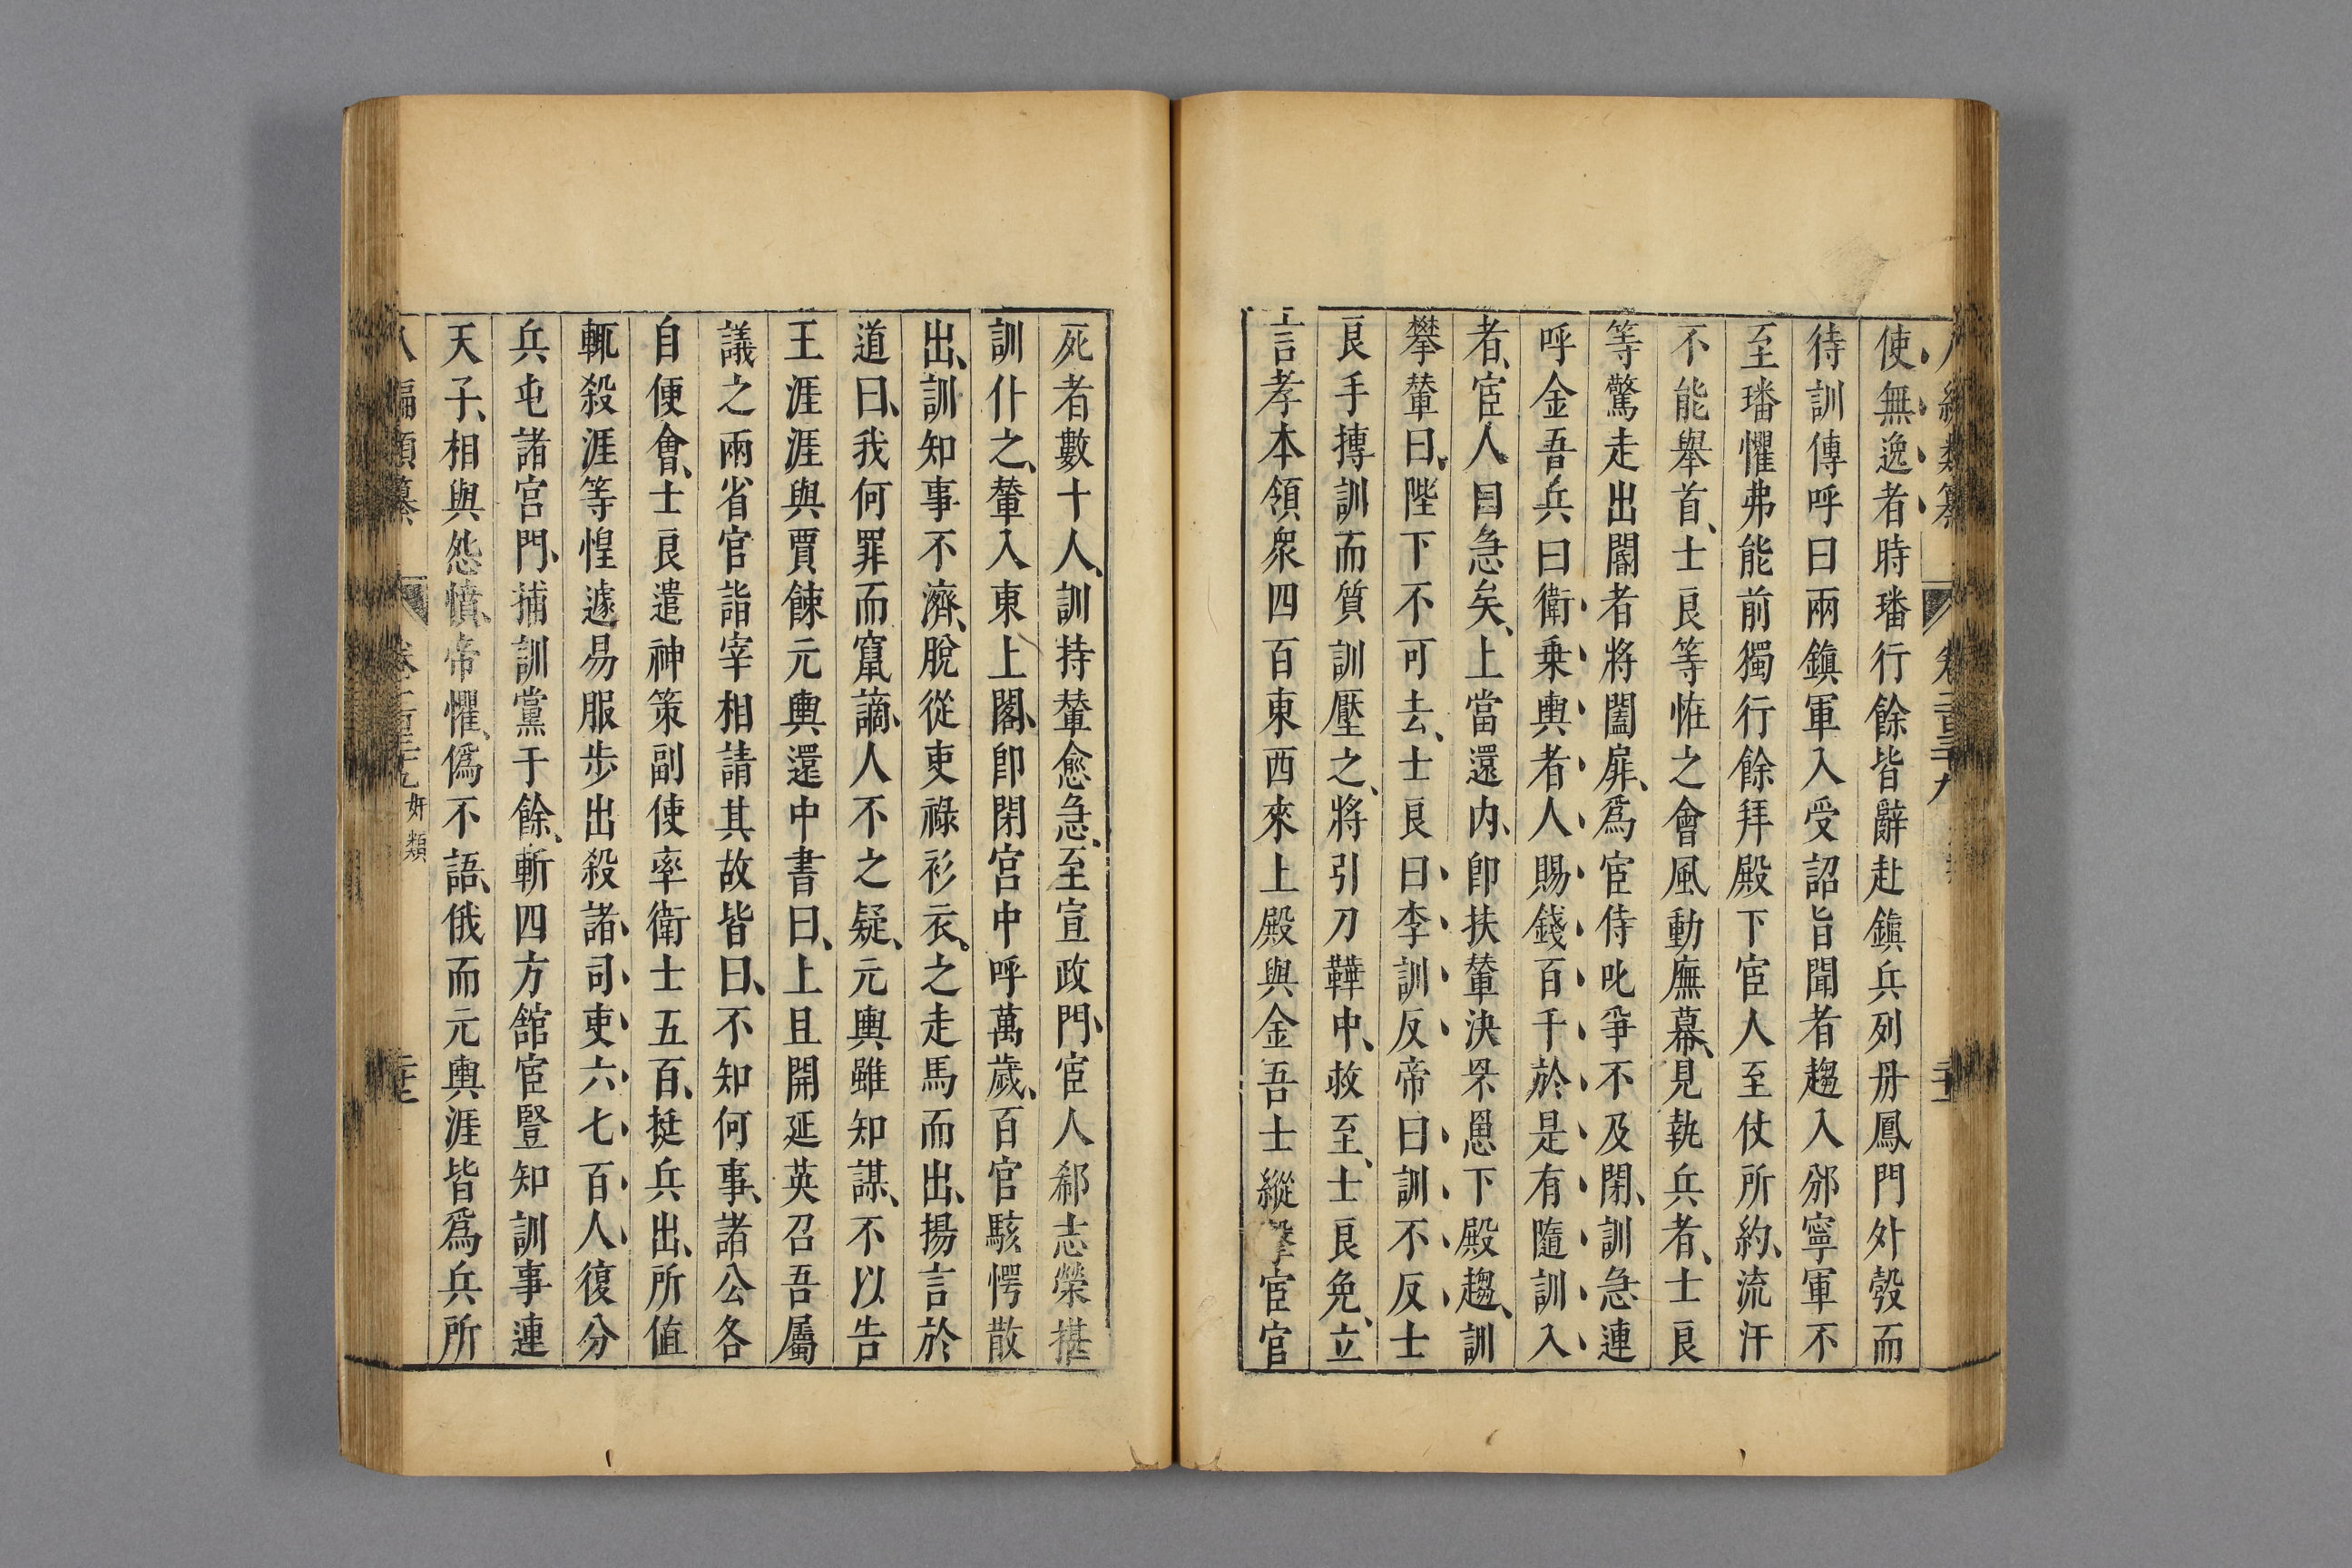 使無逸者時璠行餘皆辭赴鎮兵列丹鳳門外彀而
待訓傳呼曰兩鎮軍入受詔旨聞者趨入邠寧軍不
至璠懼弗能前獨行餘拜殿下宦人至仗所約、流汗
不能舉首、士良等恠之會風動廡幕、見執兵者、士良
等驚走出閽者將闔扉、爲宦侍叱爭不及閉、訓急連
呼金吾兵曰衛乗輿者人賜錢百千於是有隨訓入
者、宦人曰急矣、上當還内、卽扶輦決罘罳下殿趨、訓
攀輦曰、陛下不可去、士良曰李訓反帝曰訓不反士
良手搏訓而躓訓壓之、將引刀鞾中、救至、士良免、立
言孝本領衆四百東西來上殿與金吾士縱擊宦官
死者數十人、訓持輦愈急、至宣政門、宦人郗志榮揕
訓仆之、輦入東上閣、卽閉宫中呼萬歲、百官駭愕散
出、訓知事不濟、脫從吏祿衫衣。之走馬而出、揚言於
道曰、我何罪而竄謫、人不之疑、元輿雖知謀、不以告
王涯涯與賈餗元輿還中書曰、上且開延英召吾屬
議之兩省官詣宰相請其故皆曰、不知何事、諸公各
自便會、士良遣神策副使率衛士五百、挺兵出、所值
輒殺涯等惶遽易服步出殺諸司吏六七百人、復分
兵屯諸宫門、捕訓黨于餘、斬四方舘宦豎知訓事連
天子、相與怨憤、帝懼、僞不語、俄而元輿涯皆爲兵所
八編類纂 卷二百三十九 奸類